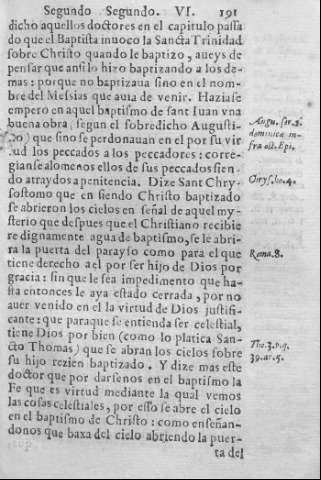 Segundo Segundo. VI. 191
dicho aquellos doctores en el capitulo passa
do que el Baptista inuoco la Sancta Trinidad
sobre Christo quando le baptizo, aueys de
pensar que ansi lo hizo baptizando a los de-
mas: porque no baptizaua sino en el nom-
bre del Messias que auia de venir. Haziase
empero en aquel baptismo de sant Iuan vna
buena obra (segun el sobredicho Augusti-
no) que sino se perdonauan en el por su vir
tud los peccados a los peccadores: corre-
gianse alomenos ellos de sus peccados sien-
do atraydos a penitencia. Dize Sant Chry-
sostomo que en siendo Christo baptizado
se abrieron los cielos en señal de aquel my-
sterio que despues que el Christiano recibie
re dignamente agua de baptismo, se le abri-
ra la puerta del parayso como para el que
tiene derecho a el por ser hijo de Dios por
gracia: sin que le sea impedimento que ha-
sta entonces le aya estado cerrada, por no
auer venido en el la virtud de Dios justifi-
cante: que paraque se entienda ser celestial,
tiene Dios por bien (como lo platica San-
cto Thomas) que se abran los cielos sobre
su hijo rezien baptizado. Y dize mas este
doctor que por darsenos en el baptismo la
Fe que es virtud mediante la qual vemos
las cosas celestiales, por esso se abre el cielo
en el baptismo de Christo: como enseñan-
donos que baxa del cielo abriendo la puer-
ta del
Augu. ser. 3.
dominica in-
fra oct. Epi.
Chrys. ho. 4.
Roma. 8.
Tho. 3. p. q.
39. ar. 5.